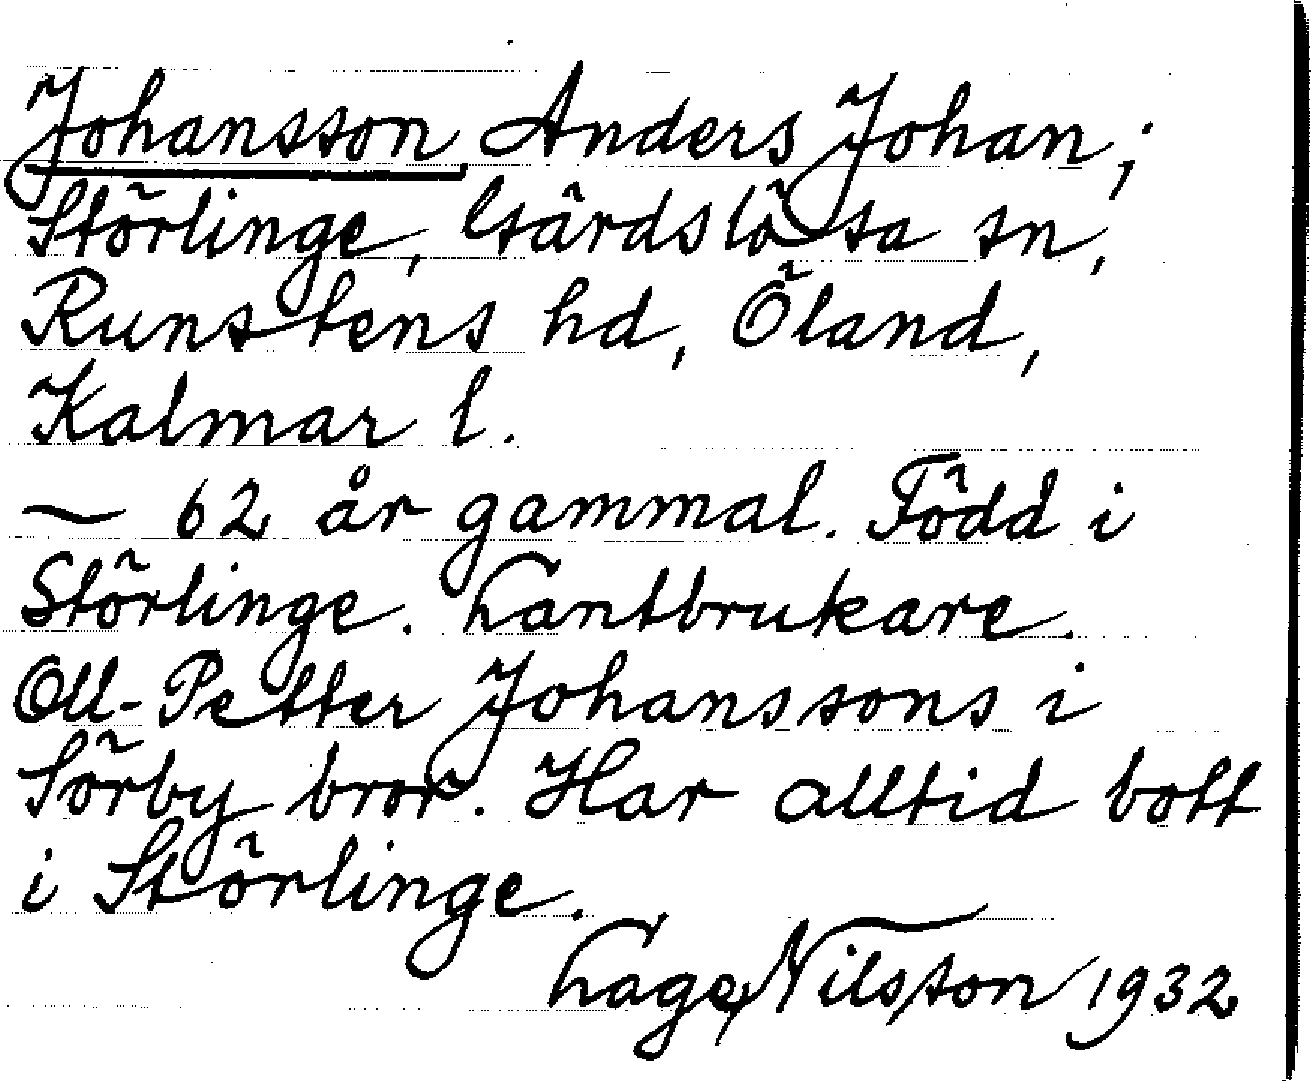 Johansson, Anders Johan;
Störlinge, Gärdslösa sn,
Runstens hd, Öland,
Kalmar l.
— 62 år gammal. Född i
Störlinge. Lantbrukare.
Oll-Petter Johanssons i
Sörby bror. Har alltid bott
i Störlinge.
Lage Nilsson 1932